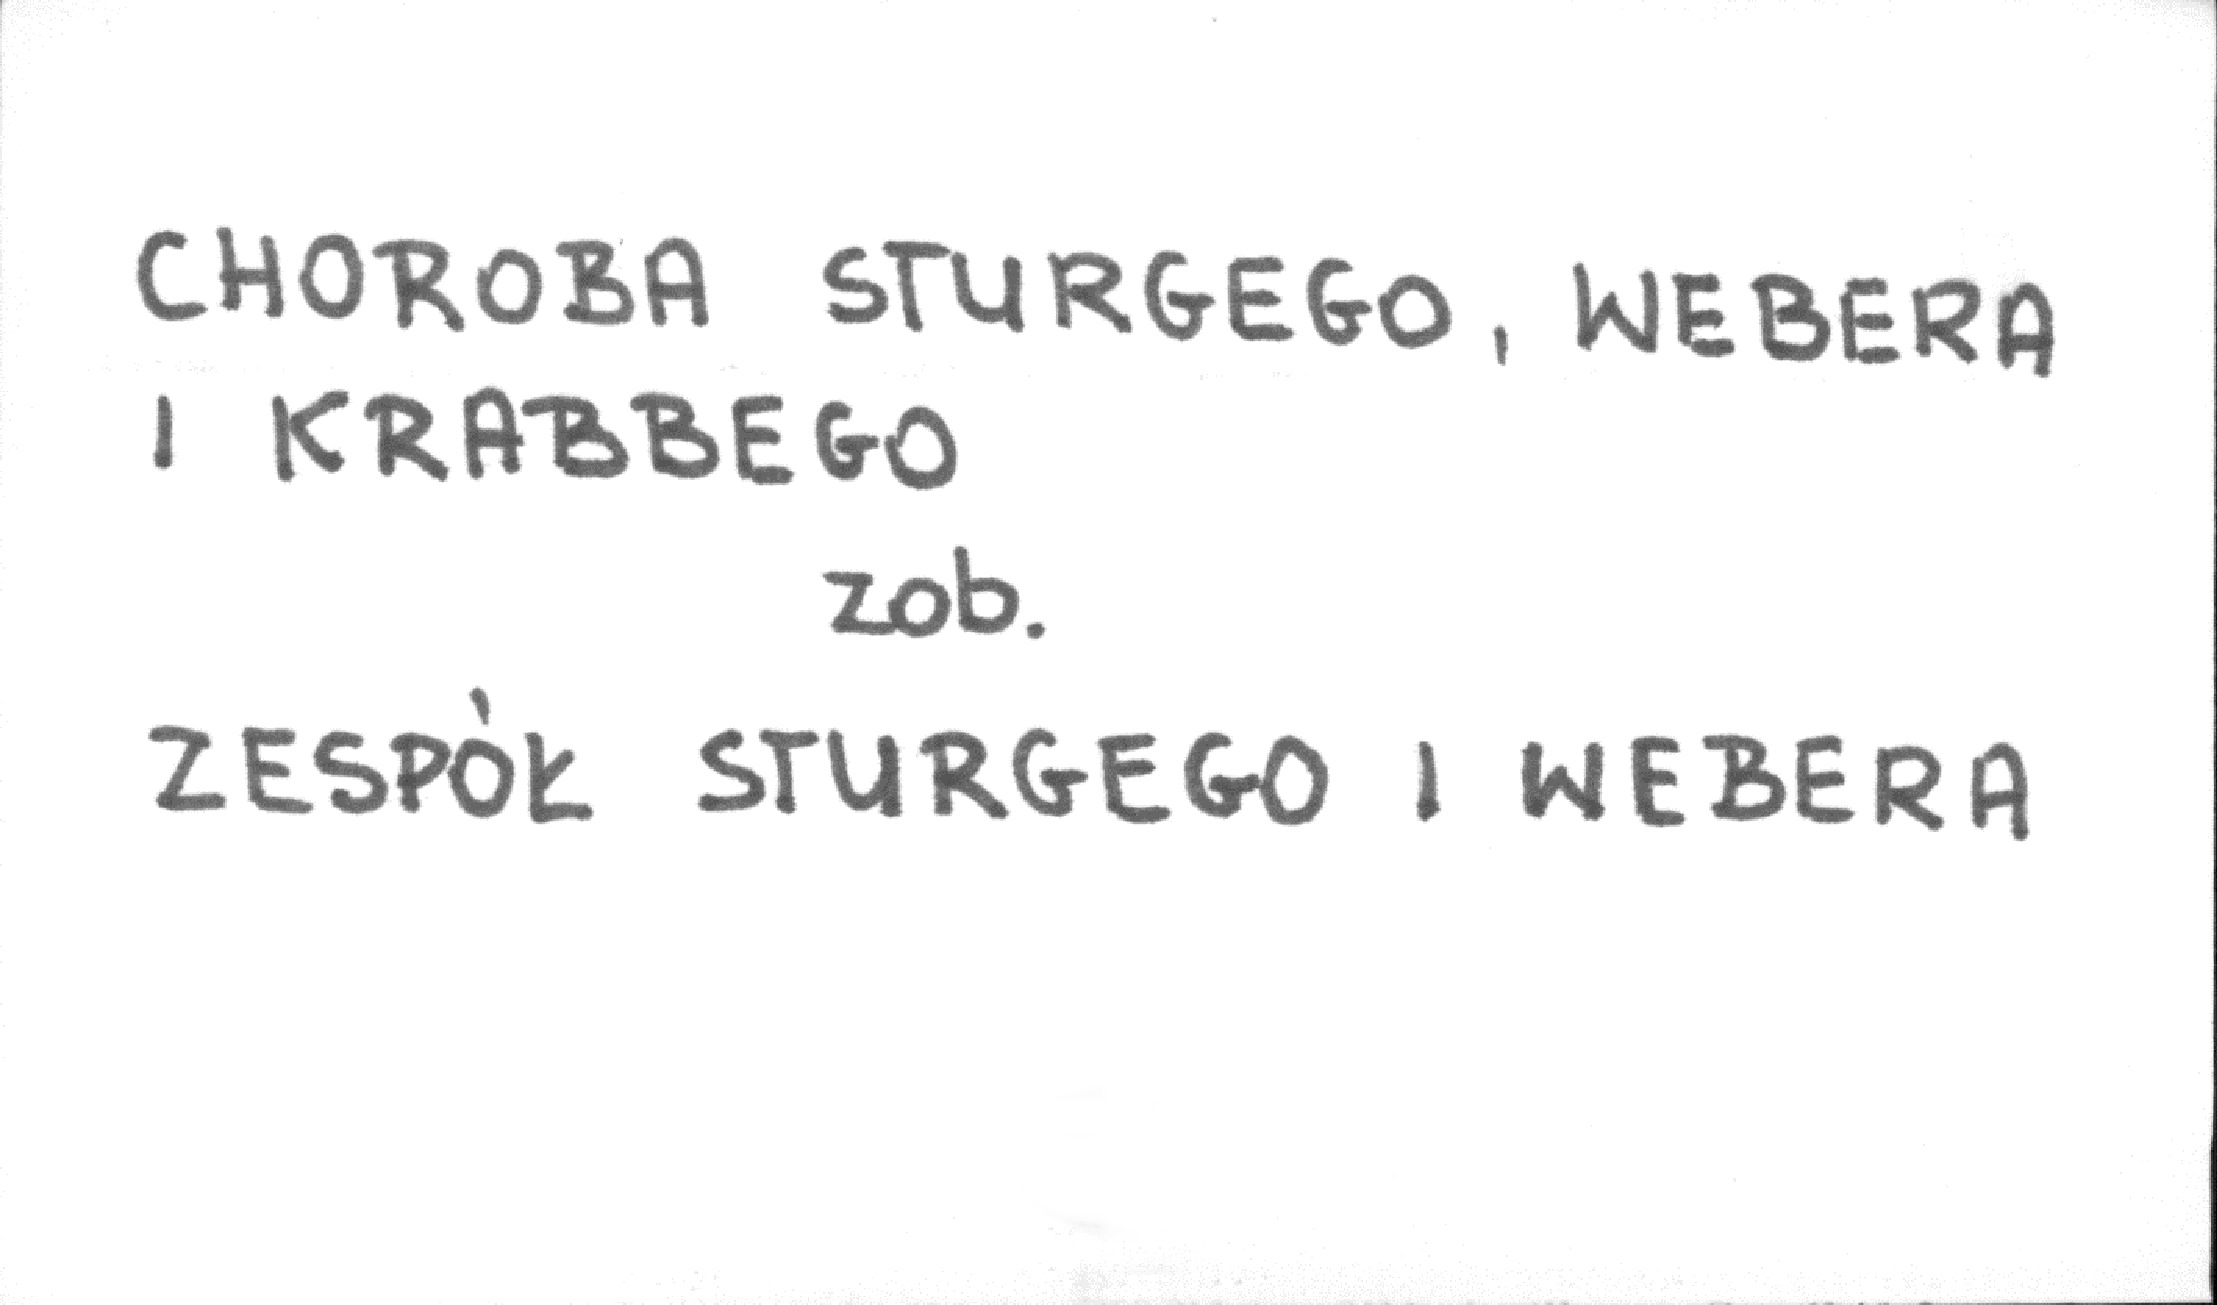 CHOROBA STURGEGO, WEBERA
I KRABBEGO
zob.
ZESPÓŁ STURGEGO I WEBERA